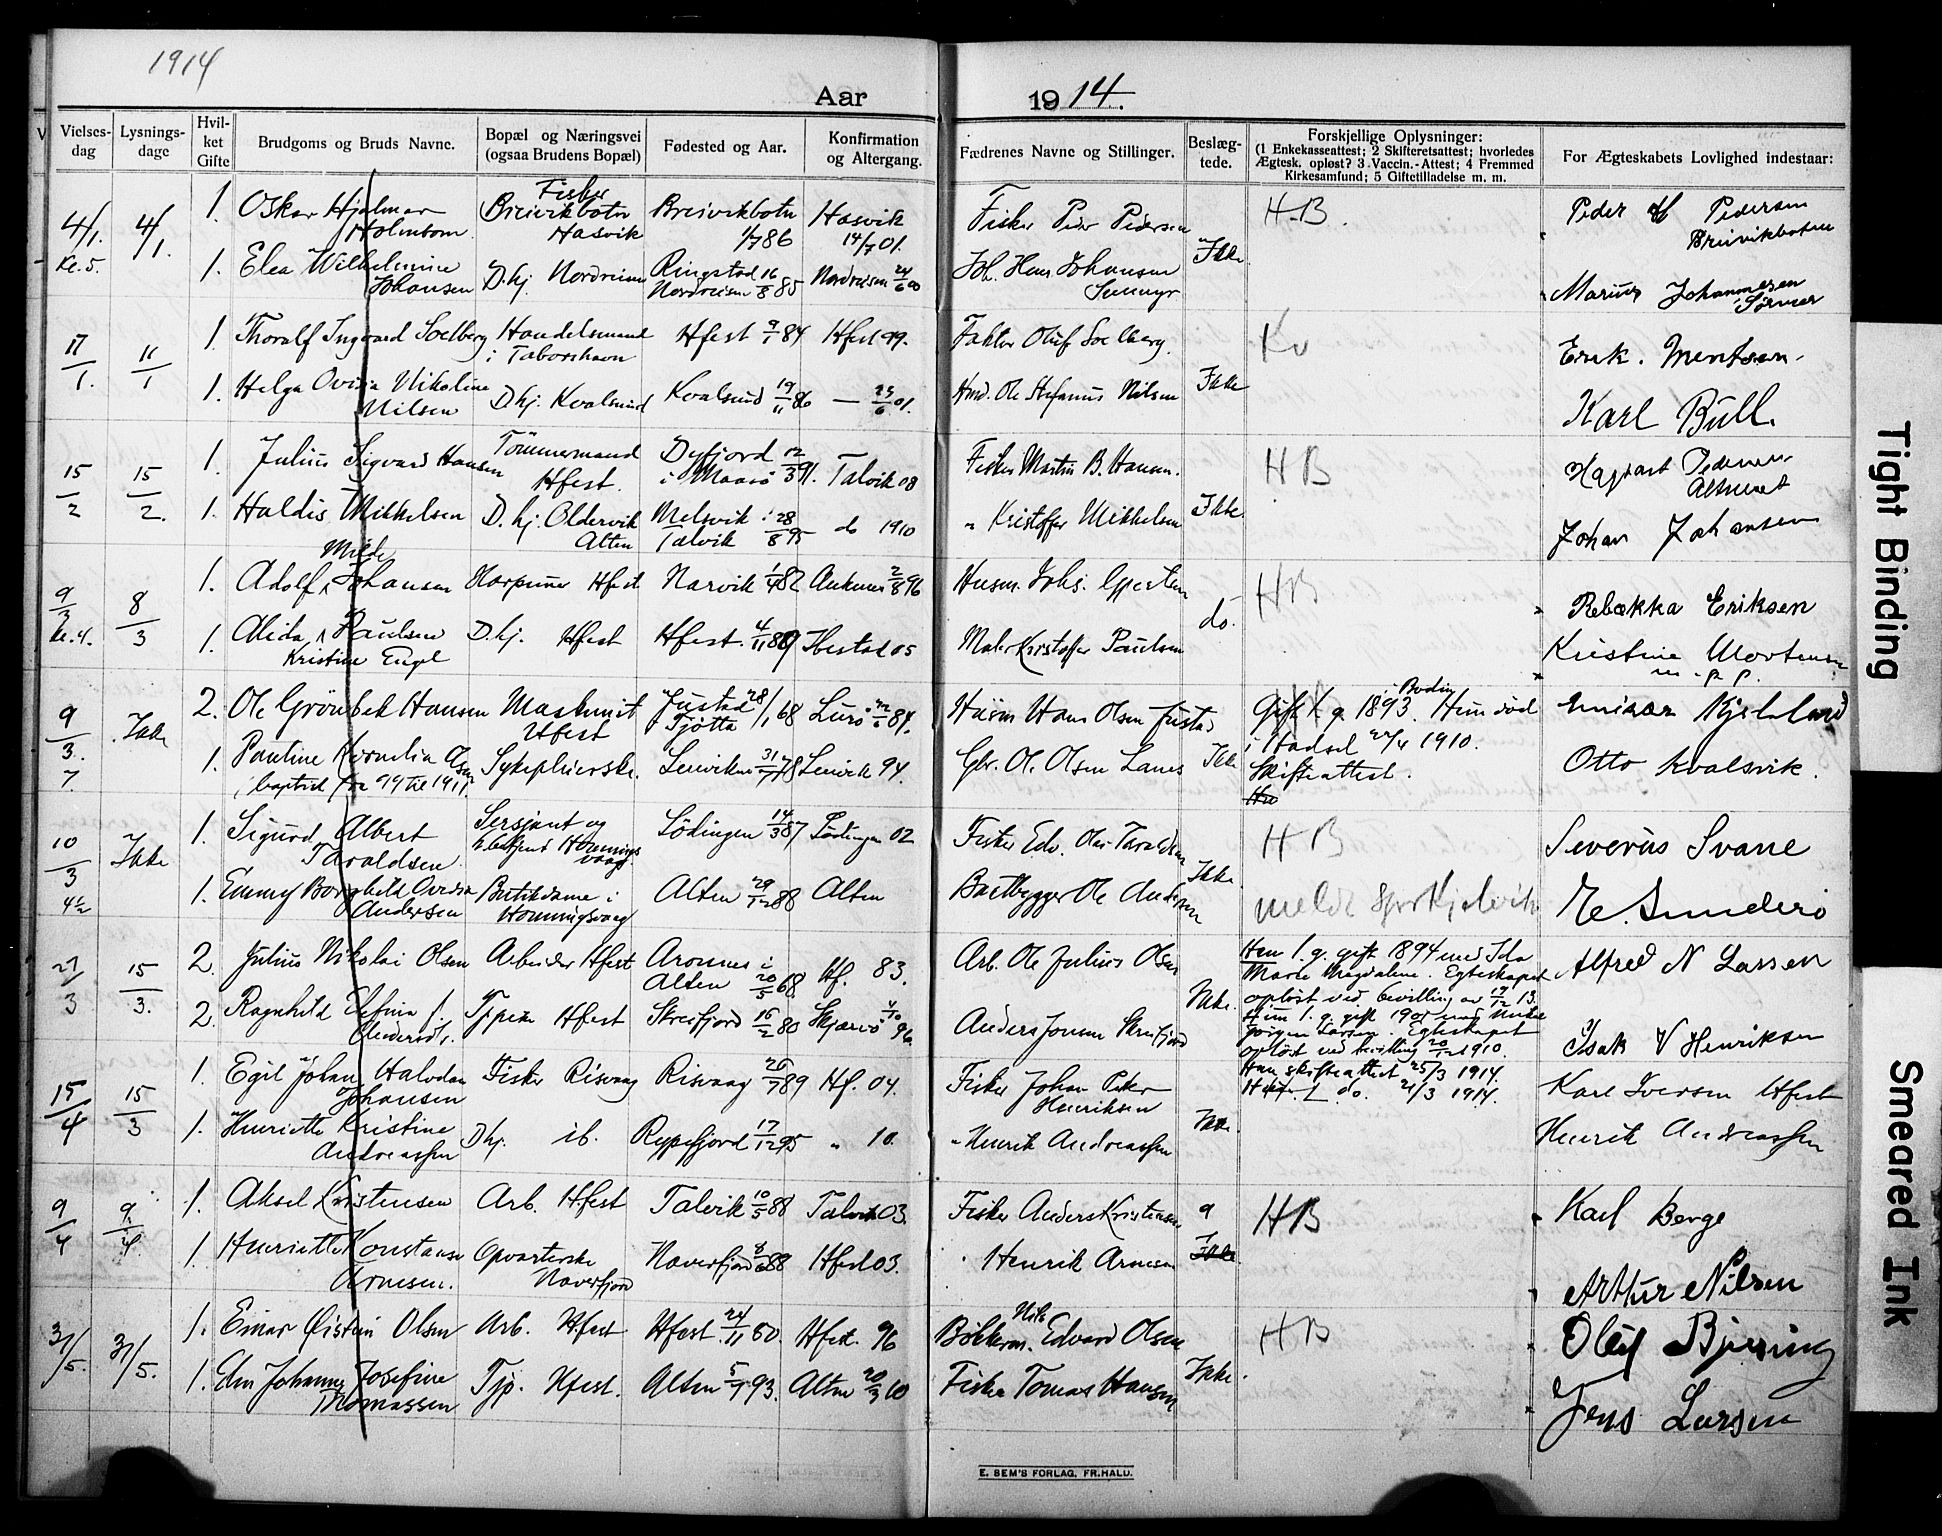 1914
Aar
1914.
Vielses-
dag
Lysnings-
dage
Hvil-
ket
Gifte
Brudgoms og Bruds Navne.
Bopæl og Næringsvei
(ogsaa Brudens Bopæl)
Fødested og Aar.
Konfirmation
og Altergang.
Fædrenes Navne og Stillinger.
Beslæg-
tede.
Forskjellige Oplysninger:
(1 Enkekasseattest; 2 Skifteretsattest; hvorledes
Ægtesk. opløst? 3 Vaccin.-Attest; 4 Fremmed
Kirkesamfund; 5 Giftetilladelse m. m.
For Ægteskabets Lovlighed indestaar:
4/1. Kl. 5.
4/1.
1. Oskar Hjalmar
Holmbom
Fisker
Breivikbotn
Hasvik
Breivikbotn
1/7 86
Hasvik
14/7 01.
Fisker Peder Pedersen
Ikke
H.B.
Peder H Pedersen
Breivikbotten
1. Elea Wilhelmine
Johansen
D. hj. Nordreisen
Ringstad 16/8 85
Nordreisen
Nordreisen 24/6 00
Joh. Hans Johansen
Marius Johannesen
11/1.
11/1
1. Thoralf Ingvard Soelberg
Handelsmand
i Taborshavn
Hfest 9/1 84
Hfest 99.
Faktor Oluf Soelberg.
Ikke
Kv
Erik. Mentsen.
1. Helga Ovidia Nikoline
Nilsen
D hj. Kvalsund
Kvalsund 19/11 86
— 25/6 01.
Ole Stefanus Nilsen
Karl Bull.
15/2
15/2.
1. Julius Sigvard Hansen
Tömmermand
Hfest.
Dyfjord 12/3 91.
i Maasö
Talvik 08
Fisker Martin B. Hansen.
Ikke.
H B
Pedersen
1. Haldis Mikkelsen
D. hj. Oldervik
Alten
Melsvik i 28/8 95
Talvik
do 1910
" Kristoffer Mikkelsen
Johan Johansen
9/3 Kl. 4.
8/3
Milde
1. Adolf Johansen
Harpuner Hfest
Narvik 1/4 82
Ankenes 2/8 96
Husm. Johs.
do.
HB
Rebækka Eriksen
1. Alida Paulsen
Kristine Engel
D. hj. Hfest
Hfest. 4/11 89
Ibestad 05
Maler Kristoffer Paulsen
Kristine Mortensen
m. p. p.
9/3. 7.
Ikke
2. Ole Grönbek Hansen
Maskinist
Hfest
Justad 28/1 68
Tjötta
Lurö 84.
Husm Hans Olsen Justad
Ikke
Gift 1 g. 1893. i Bodin Hun död
i Hadsel 22/4 1910.
Skifteattest.
Kjelland
1. Pauline Kornelia Olsen
baptist fra 99 til 1911
Sykepleierske.
Lenvik 31/7 78
Lenvik 94.
Gbr. O. Olsen Lanes
Otto Kvalsvik.
10/3 4½
Ikke
1. Sigurd Albert
Taraldsen
Sersjant og
Honnings-
vaag
Lödingen 14/3 87
Lödingen 02
Fisker Edv. Olai Taraldsen
Ikke.
H B
Severus Svane
1. Emmy Borghild Ovidia
Andersen
Butikdame i
Honningsvaag
Alten 29/12 88
Alten
Baatbygger Ole Andersen
E. Sunderö
27/3
15/3.
2. Julius Nikolai Olsen
Arbeider Hfest
Aronnes i
Alten 20/5 68.
Hf. 83.
Arb. Ole Julius Olsen
Ikke.
Han 1. g. gift 1894 med Ida
Marie Magdalene. Egteskapet
oplöst ved bevilling av 17/12 13.
Hun 1. g. gift
Jörgen Larsen. Egteskapet
oplöst ved bevilling 20/12 1910.
Han skifteattest 25/3 1914.
Hun do. 21/3 1914.
Alfred N Larssen
2. Ragnhild Elfina f.
Andersd.
Tj.pike Hfest
Skreifjord 16/2 80
Skjervö 4/10 96
Anders Jonsen Skreifjord
Isak V Henriksen
15/4
15/3
1. Egil Johan Halvdan
Johansen
Fisker Risvaag
Risvaag 26/7 89
Hf. 04.
Fisker Johan Peter
Henriksen
Ikke.
Karl Iversen Hfest
1. Henriette Kristine
Andreassen
D hj. ib.
Rypefjord 17/12 95
" 10.
" Henrik Andreassen
Henrik Andreassen
9/4
9/4.
1. Aksel Kristensen
Arb. Hfest
Talvik 10/5 88
Talvik 03.
Fisker Anders Kristensen
Ikke
HB
Karl Berge
1. Henriette Konstanse
Arnesen.
Opvarterske
Naverfjord
Naverfjord 8/6 88
Hfest 03.
Henrik Arnesen
Arthur Nilsen
31/5.
31/5.
1. Einar Øistein Olsen
Arb. Hfest
Hfest 24/11 80.
Hfest. 96
Nils
Bökkerm. Edvard Olsen
Ikke.
HB
Oluf Bjerring
1. Elen Johanna Josefine
Thomassen
Tjp. Hfest.
Alten 5/1 93.
Alten 20/3 10
Fisker Tomas Hansen
Jens Larsen
E. SEM'S FORLAG, FR.HALD.
Tight Binding
Smeared Ink